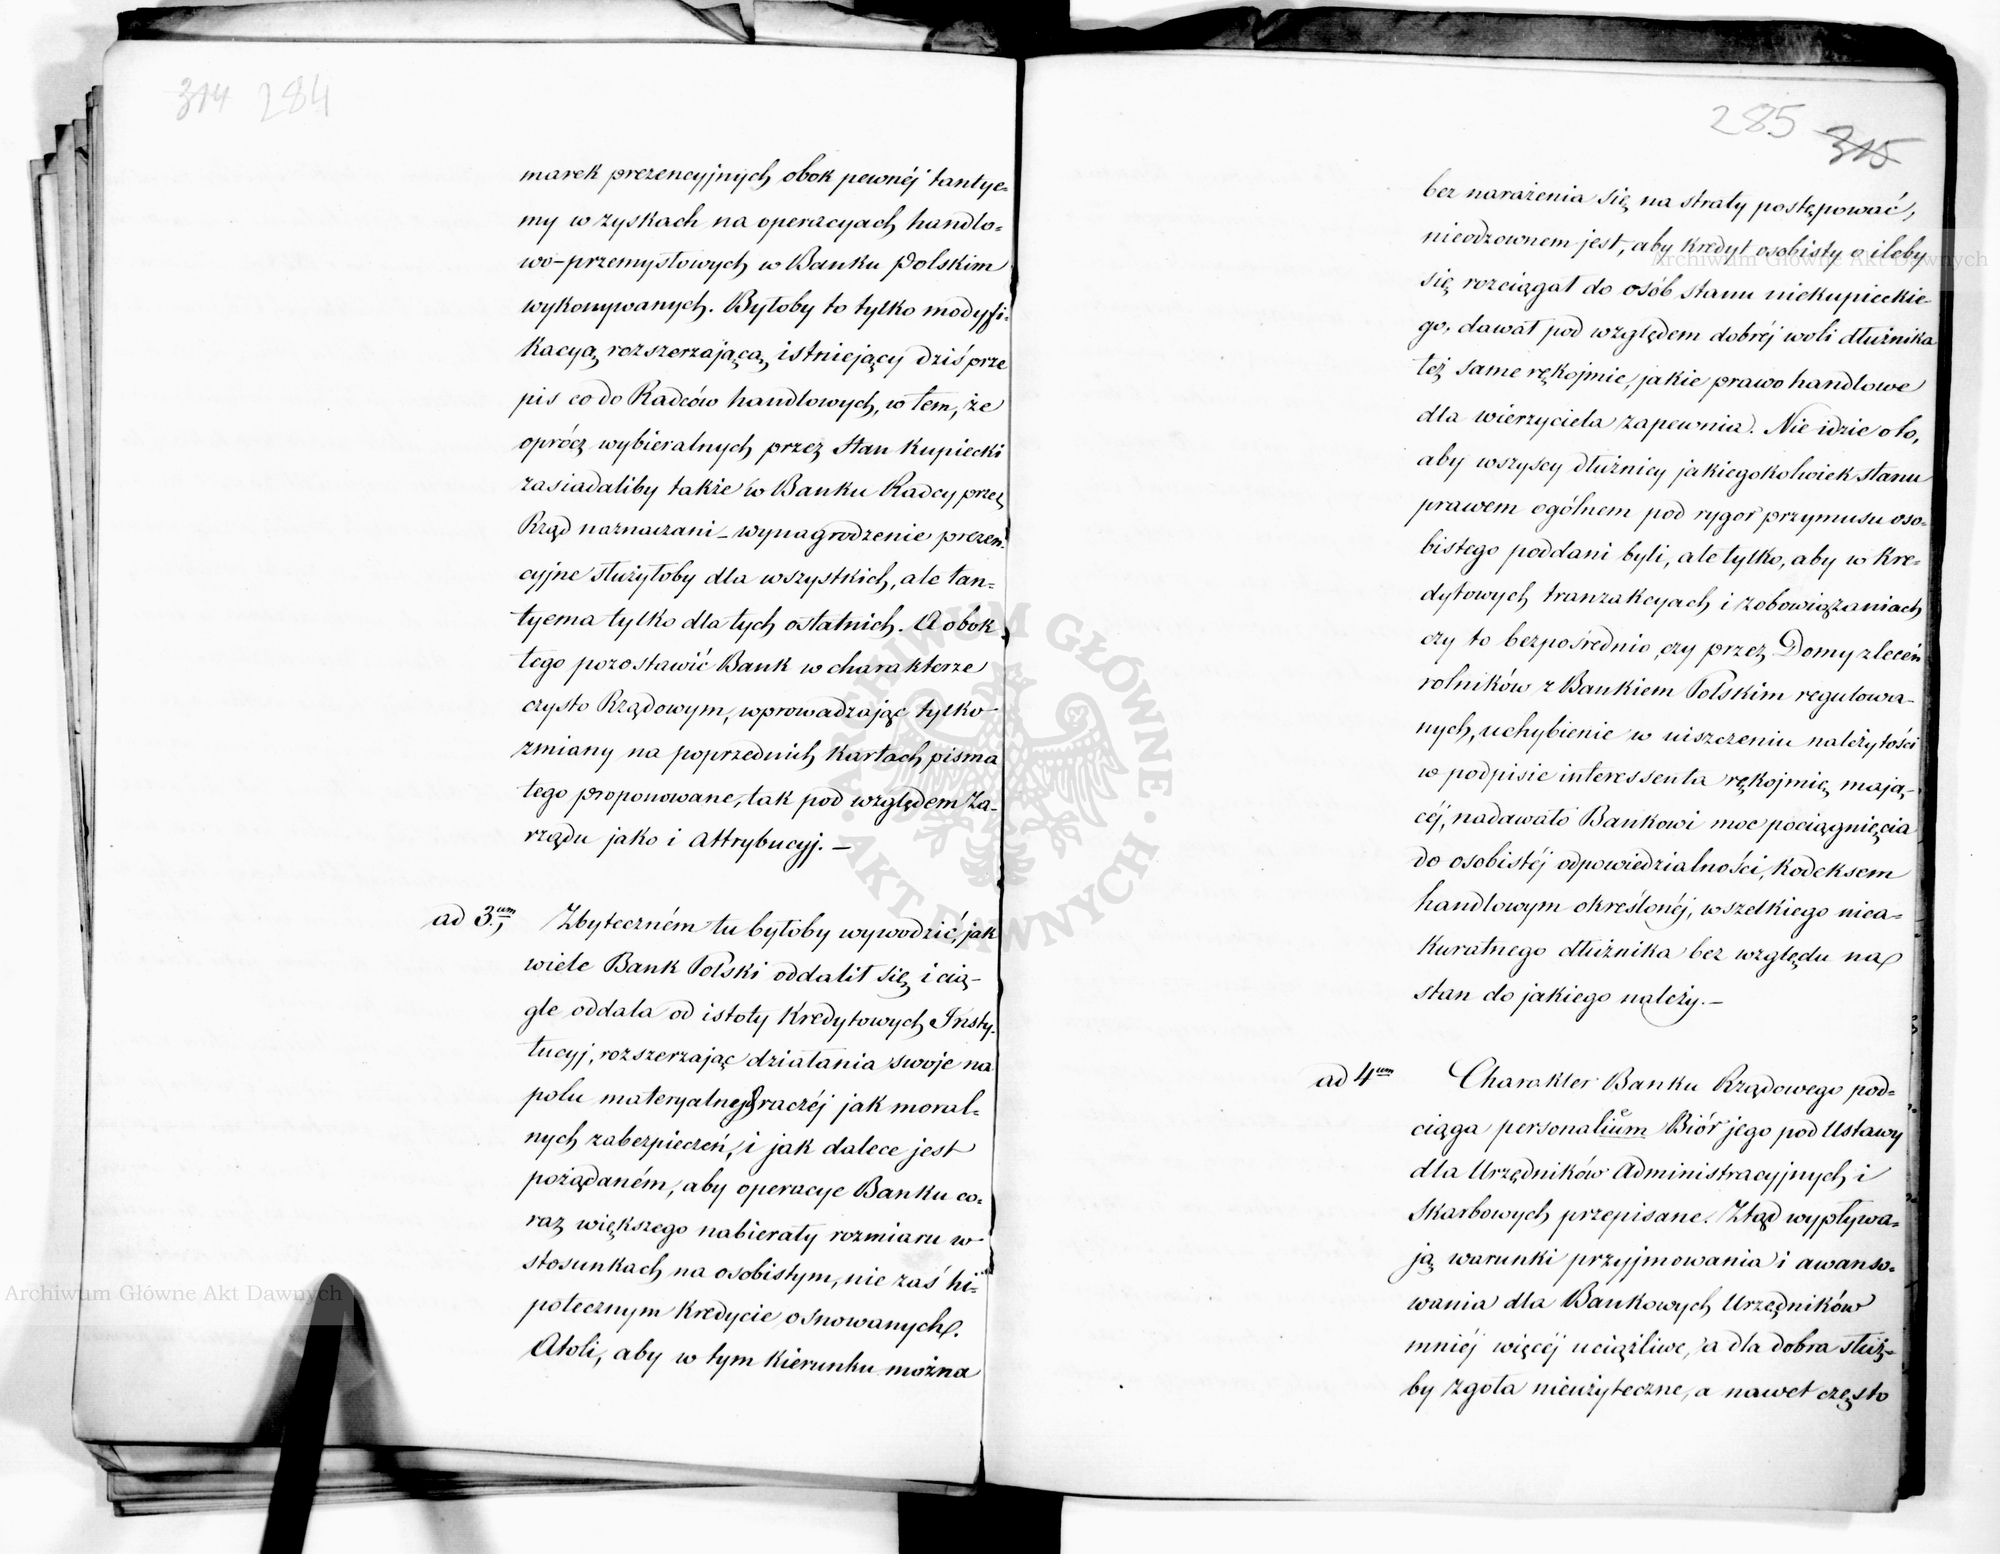 314 284
marek prezencyjnych, obok pewnéj tantye=
my w zyskach na operacyach handlo=
wo-przemysłowych w Banku Polskim
wykonywanych. Byłoby to tylko modyfi=
kacyą rozszerzającą, istniejący dziś prze
pis co do Radców handlowych, w tem, że
oprócz wybieralnych przez stan kupiecki
zasiadaliby także w Banku Radcy przez
Rząd naznaczani – wynagrodzenie prezen=
cyjne służyłoby dla wszystkich, ale tan=
tyema tylko dla tych ostatnich. A obok
tego pozostawić Bank w charakterze
czysto Rządowym, wprowadzając tylko
zmiany na poprzednich kartach pisma
tego proponowane, tak pod względem Za-
rządu jako i Attrybucyj. –
ad 3um, Zbyteczném tu byłoby wywodzić, jak
wiele Bank Polski oddalił się, i cią-
gle oddala od istoty Kredytowych Insty-
tucyj, rozszerzając działania swoje na
polu materyalnych raczéj jak moral=
nych zabezpieczeń, i jak dalece jest
pożądaném, aby operacye Banku co=
raz większego nabierały rozmiaru w
stosunkach na osobistym, nie zaś hi=
potecznym kredycie osnowanych.
Atoli, aby w tym kierunku można
285 315
bez narażenia się na straty postępować,
nieodzownem jest, aby kredyt osobisty o ileby
się rozciągał do osób stanu niekupieckie-
go, dawał pod względem dobréj woli dłużnika
też same rękojmie, jakie prawo handlowe
dla wierzyciela zapewnia. Nie idzie o to,
aby wszyscy dłużnicy jakiegokolwiek stanu
prawem ogólnem pod rygor przymusu oso=
bistego poddani byli, ale tylko, aby w kre=
dytowych tranzakcyach i zobowiązaniach
czy to bezpośrednio, czy przez Domy zleceń
rolników z Bankiem Polskim regulowa-
nych, uchybienie w uiszczeniu należytości
w podpisie interessenta rękojmię mają-
céj, nadawało Bankowi moc pociągnięcia
do osobistéj odpowiedzialności, Kodeksem
handlowym określonéj, wszelkiego niea=
kuratnego dłużnika bez względu na
stan do jakiego należy. –
ad 4um Charakter Banku Rządowego pod=
ciąga personalium Biór jego pod Ustawy
dla Urzędników Administracyjnych i
Skarbowych przepisane. Ztąd wypływa=
ją warunki przyjmowania i awanso=
wania dla Bankowych Urzędników
mniéj więcéj uciążliwe, a dla dobra służ=
by zgoła nieużyteczne, a nawet często
ARCHIWUM GŁÓWNE
AKT DAWNYCH
Archiwum Główne Akt Dawnych
Archiwum Główne Akt Dawnych